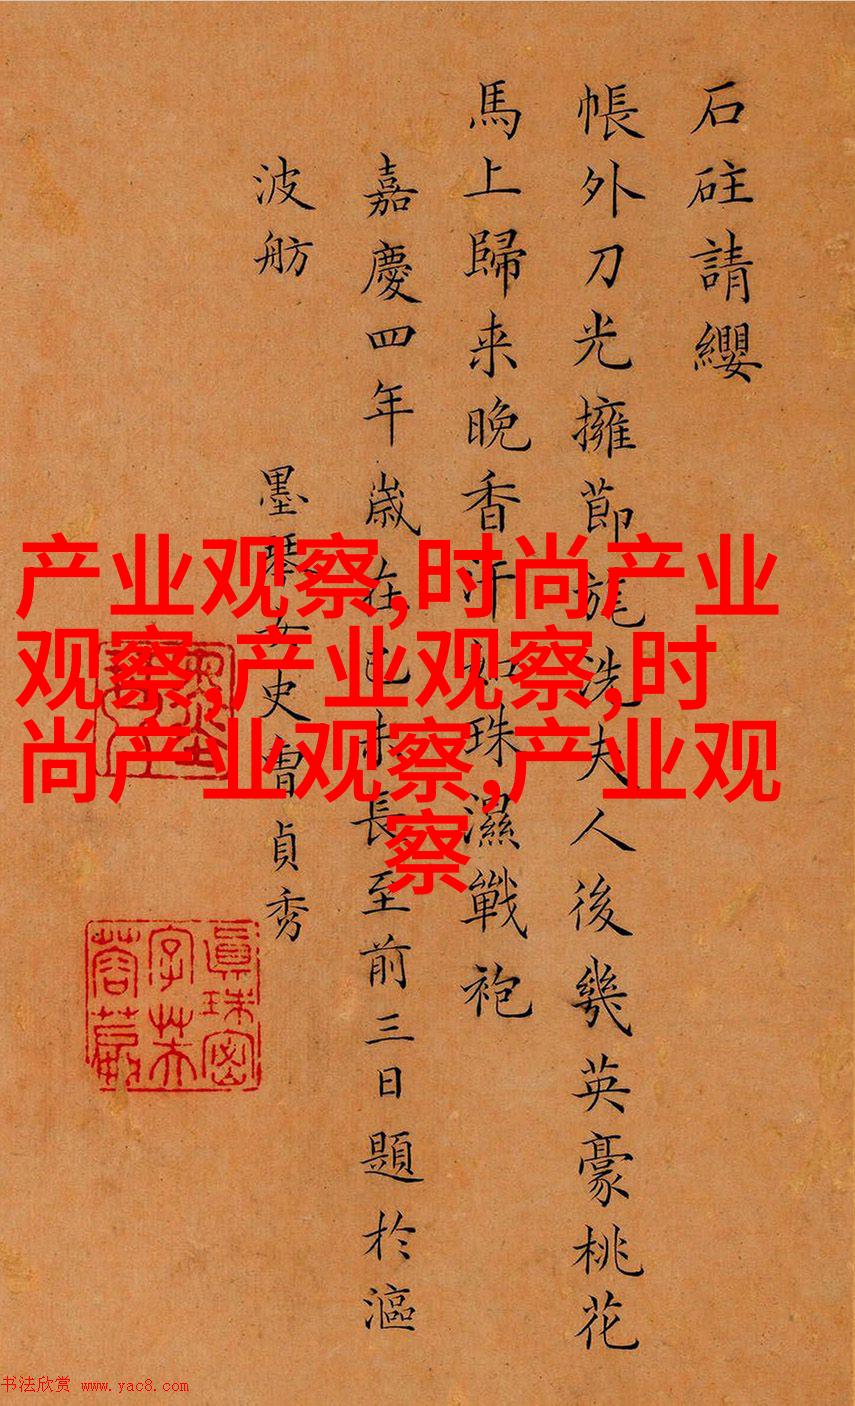 石砫請纓
帳外刀光擁節旄洗夫人後幾英豪桃花
馬上歸来晚香汗如珠濕戰袍
嘉慶四年歲在已未長至前三日題於漚
波舫
墨琴女史曹貞秀
产业观察,时尚产业
观察,产业观察,时
尚产业观察,产业观
察
书法欣赏 www.yac8.com